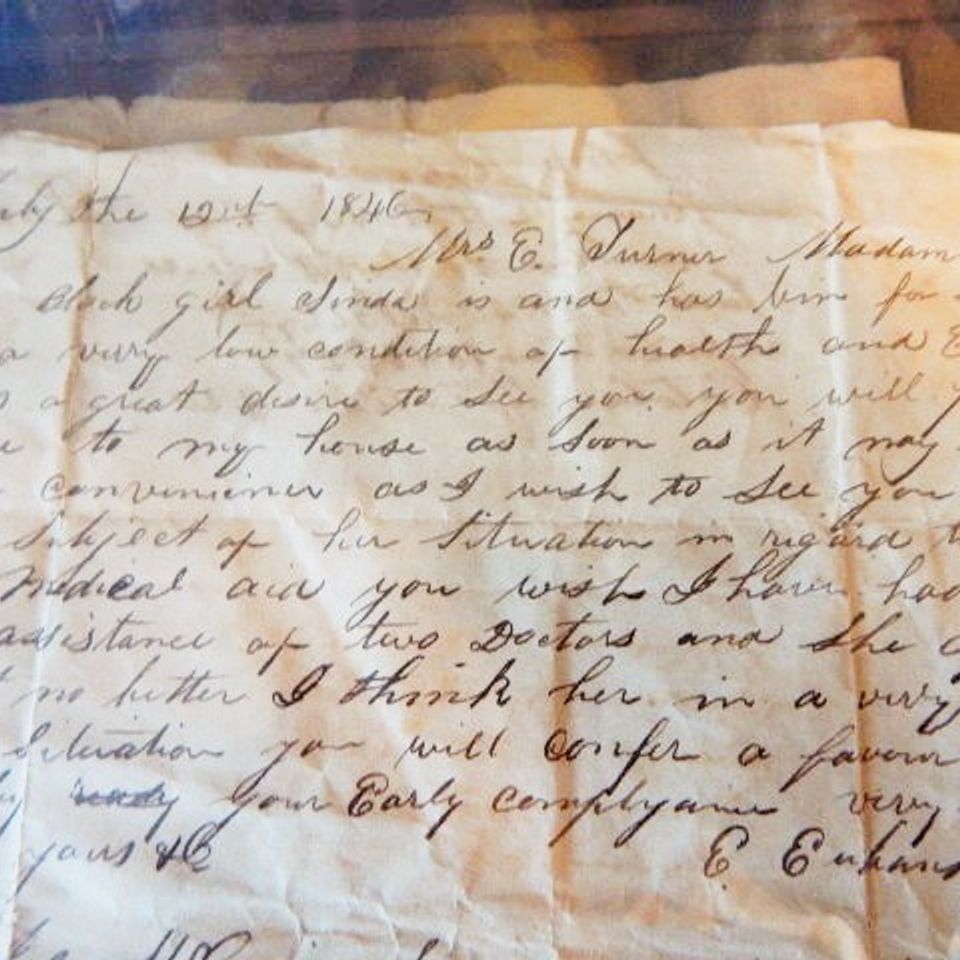 the 12th 1846
Mrs E. Turner Madam
Black girl Linda is and has bin for
a verry low condition of health and
a great desire to See you you will
to my house as Soon as it may
convenience as I wish to See you
Subject of her Situation in regard
Medical aid you wish I have had
assistance of two Doctors and She
no better I think her in a verry
Situation you will confer a favour
your Early complyance very
yours &c
E. Eubank